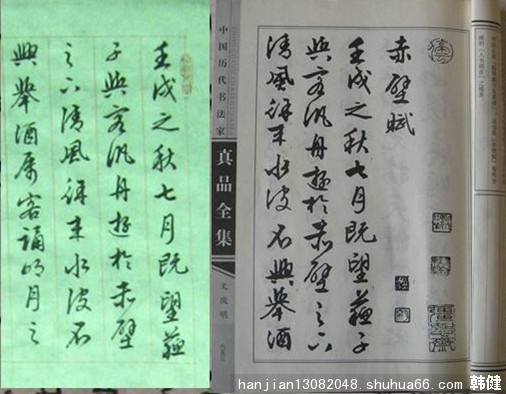 壬戌之秋七月既望蘇
子與客汎舟遊於赤壁
之下清風徐来水波不
興舉酒属客誦明月之
中国历代书法家
真品全集
文徵明
赤壁賦
壬戌之秋七月既望蘇子
與客汎舟遊於赤壁之下
清風徐来水波不興舉酒
hanjian13082048. shuhua66. com 韩健